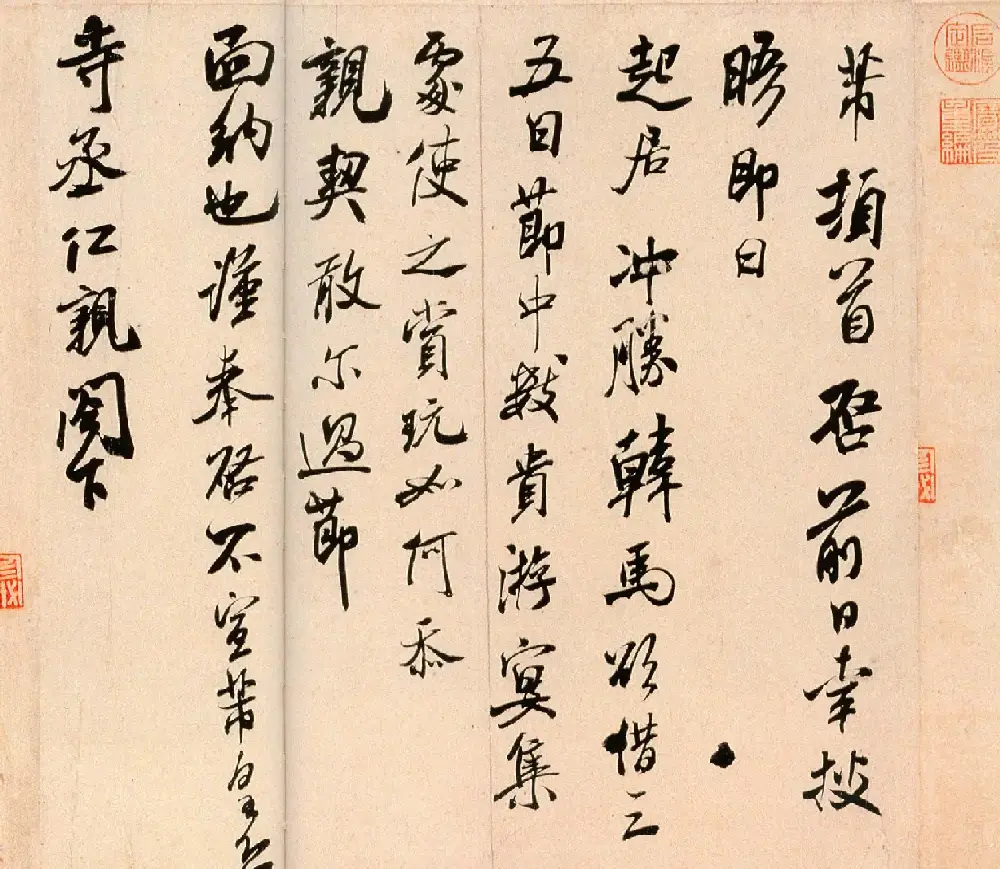 芾頓首啓前日幸披
晤即日
起居沖勝韓馬欲借三
五日節中數貴游宴集
處使之賞玩如何忝
親契敢尔過節
面納也謹奉啓不宣芾皇
寺丞仁親閣下